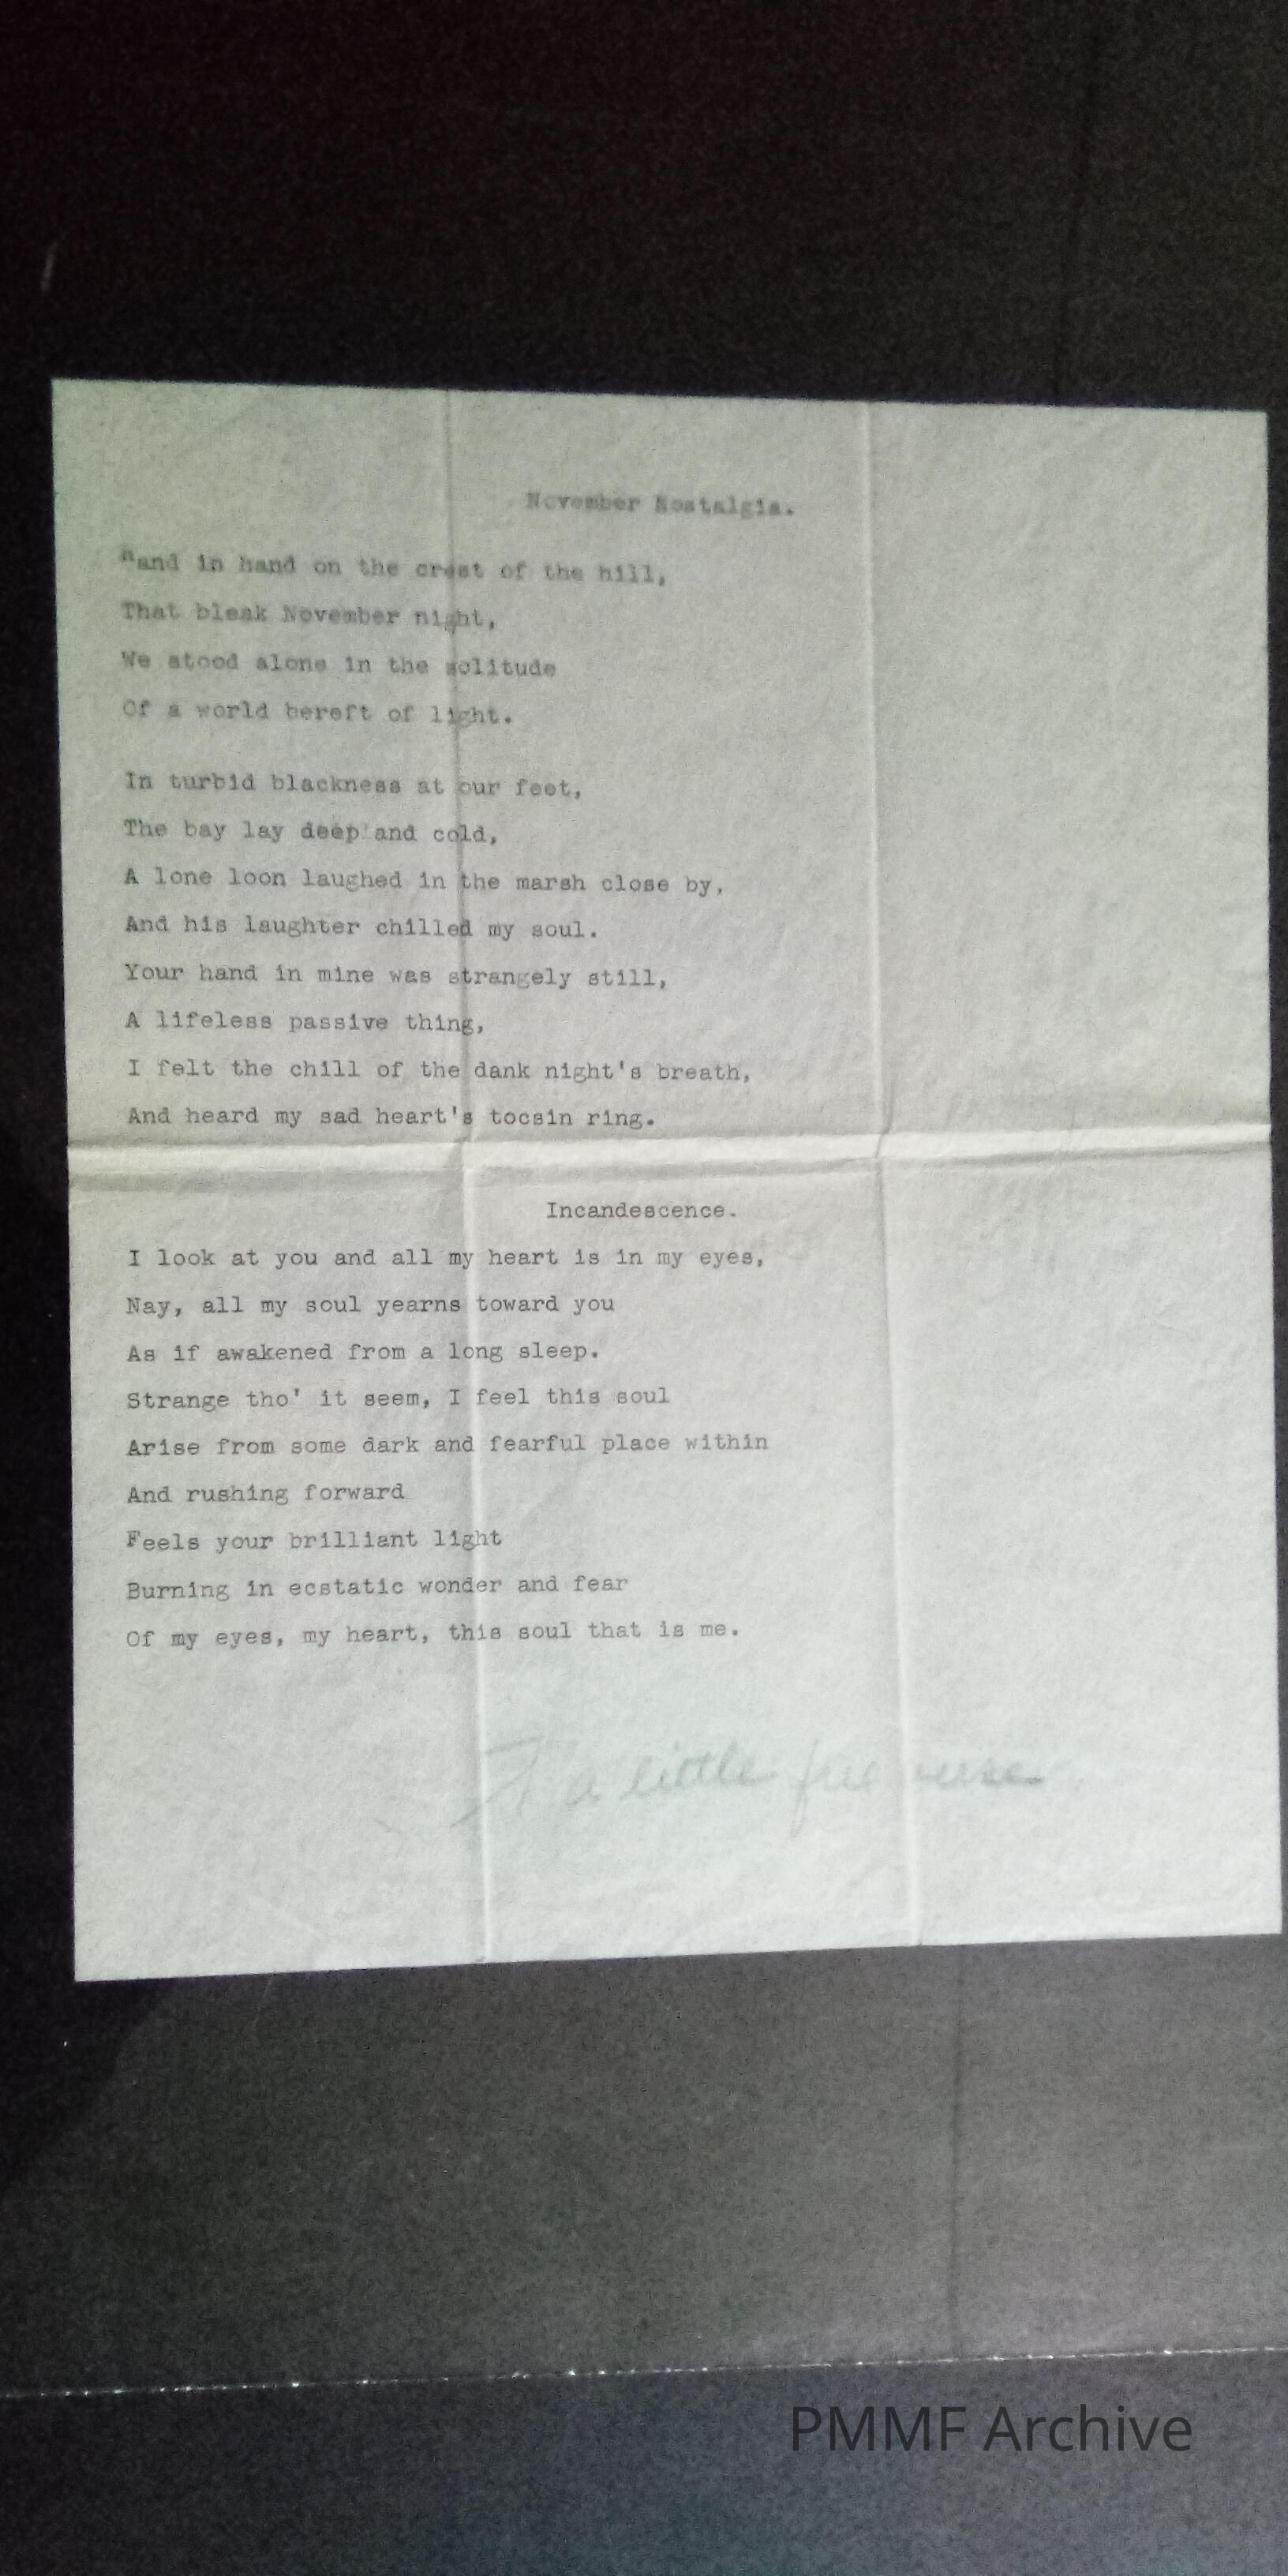 November Nostalgia.
Hand in hand on the crest of the hill,
That bleak November night,
We stood alone in the solitude
Of a world bereft of light.
In turbid blackness at our feet,
The bay lay deep and cold,
A lone loon laughed in the marsh close by,
And his laughter chilled my soul.
Your hand in mine was strangely still,
A lifeless passive thing,
I felt the chill of the dank night's breath,
And heard my sad heart's tocsin ring.
Incandescence.
I look at you and all my heart is in my eyes,
Nay, all my soul yearns toward you
As if awakened from a long sleep.
Strange tho' it seem, I feel this soul
Arise from some dark and fearful place within
And rushing forward
Feels your brilliant light
Burning in ecstatic wonder and fear
Of my eyes, my heart, this soul that is me.
a little free verse
PMMF Archive